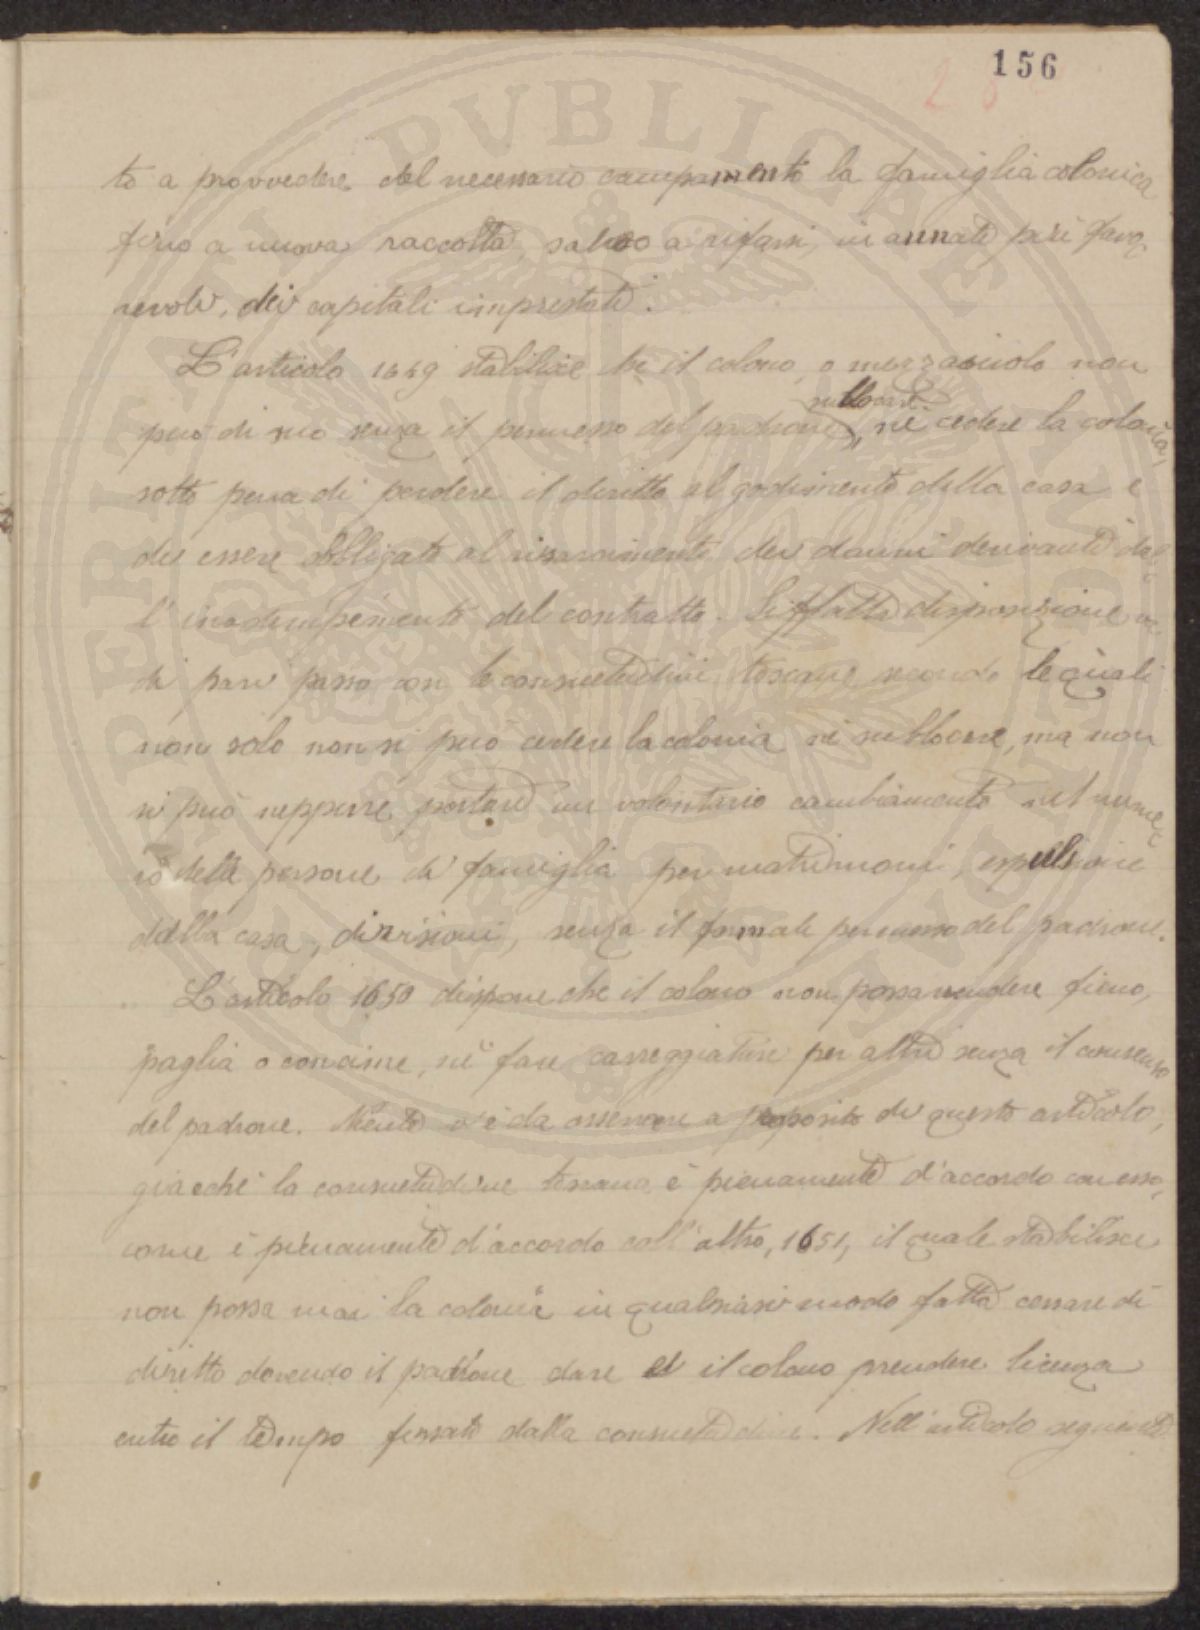 156
to a provvedere del necessario campamento la famiglia colonica
fino a nuova raccolta, salvo a rifarsi, in annate più favo-
revoli, dei capitali imprestati.
L'articolo 1649 stabilisce che il colono o mezzaiuolo non
sullocare
può di suo senza il permesso del padrone, nè cedere la colonia,
sotto pena di perdere il diritto al godimento della casa e
di essere obbligato al risarcimento dei danni derivanti dal
l'inadempimento del contratto. Siffatta disposizione va
di pari passo con le consuetudini toscane secondo le quali
non solo non si può cedere la colonia nè sullocare, ma non
si può neppure portare un volontario cambiamento nel nume
ro delle persone di famiglia per matrimoni, espulsioni
dalla casa, divisioni, senza il formale permesso del padrone.
L'articolo 1650 dispone che il colono non possa vendere fieno,
paglia o concime, nè fare carreggiature per altri senza il consenso
del padrone. Niente v'è da osservare a proposito di questo articolo,
giacchè la consuetudine toscana è pienamente d'accordo con esso,
come è pienamente d'accordo coll'altro, 1651, il quale stabilisce
non possa mai la colonia in qualsiasi modo fatta cessare di
diritto dovendo il padrone dare ed il colono prendere licenza
entro il tempo fissato dalla consuetudine. Nell'articolo seguente